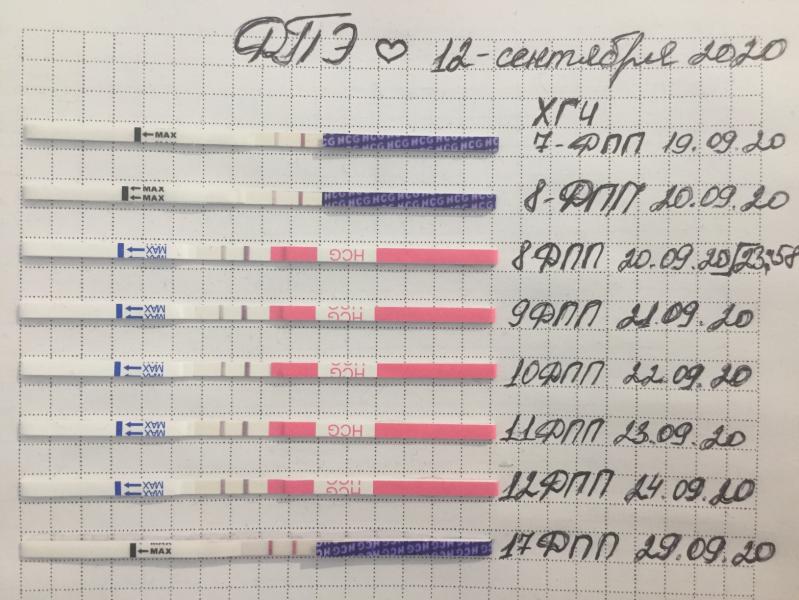 ФТПЭ ♡ 12-сентября 2020
ХГЧ
←MAX HCG HCG HCG HCG HCG HCG 7-ФПП 19.09.20
←MAX
←MAX HCG HCG HCG HCG HCG HCG 8-ДПП 20.09.20
MAX HCG 8ДПП 20.09.20/23:58
MAX HCG 9ДПП 21.09.20
MAX HCG 10ДПП 22.09.20
MAX HCG 11ДПП 23.09.20
MAX HCG 12ДПП 24.09.20
←MAX HCG HCG HCG HCG HCG HCG 17ДПП 29.09.20